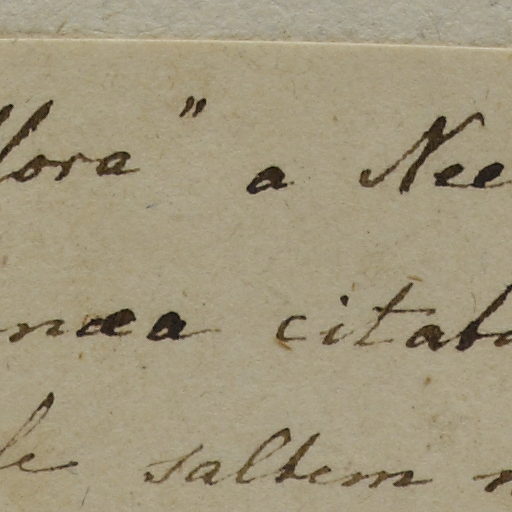 lora" a Nee
naea citata
le saltem n